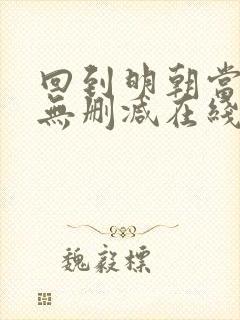 回到明朝當
無刪减在綫
魏毅標